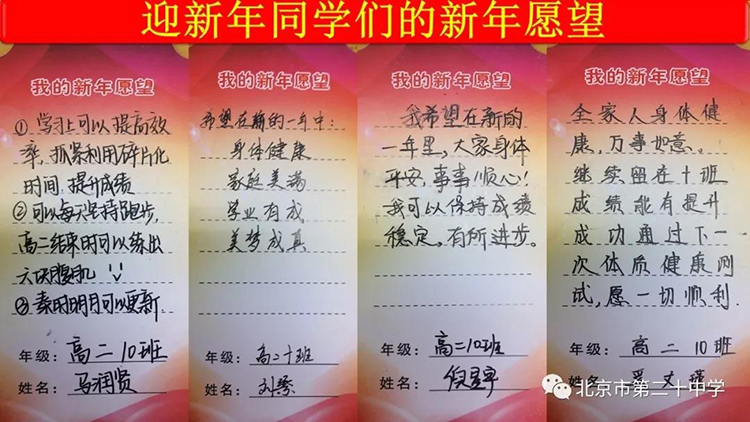 迎新年同学们的新年愿望
我的新年愿望
①学习上可以提高效
率,抓紧利用碎片化
时间,提升成绩
②可以每天坚持跑步,
高二结束时可以练出
六块腹肌
③秦时明月可以更新
年级:高二10班
姓名:马润贤
我的新年愿望
希望在新的一年中:
身体健康
家庭美满
学业有成
美梦成真
年级:高二十班
姓名:刘琴
我的新年愿望
我希望在新的
一年里,大家身体
平安,事事顺心!
我可以保持成绩
稳定,有所进步。
年级:高二10班
姓名:
我的新年愿望
全家人身体健
康,万事如意。
继续留在十班
成绩能有提升
成功通过下一
次体质健康测
试,愿一切顺利
年级:高二10班
姓名:
北京市第二十中学